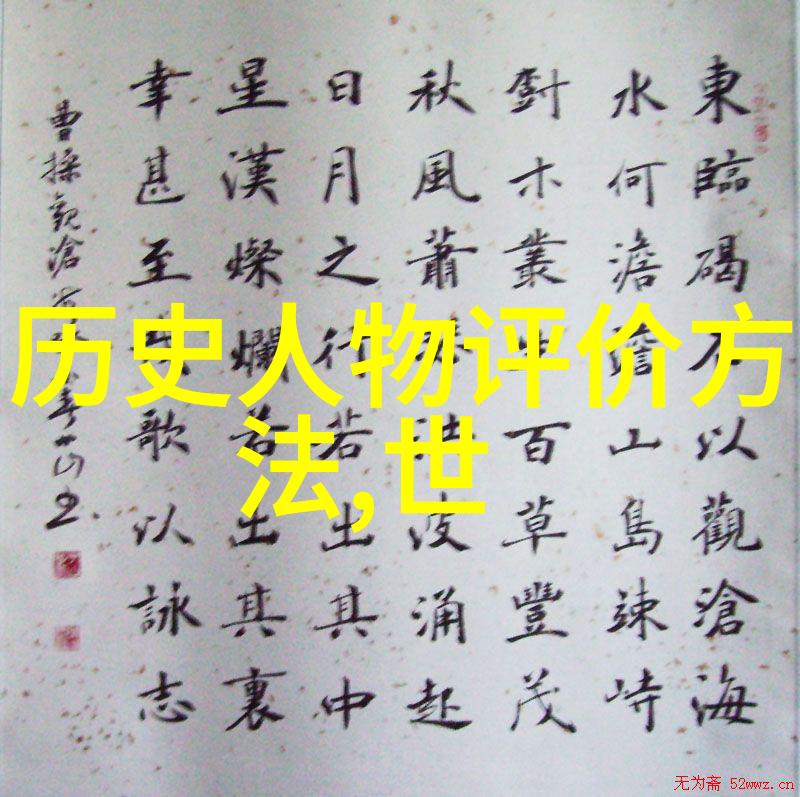 東臨碣石以觀滄海
水何澹澹山島竦峙
木叢生百草豐茂
秋風蕭瑟洪波涌起
日月之行若出其中
星漢燦爛若出其裏
幸甚至哉歌以詠志
曹操觀滄
历史人物评价方
法,世
无为斋 52wwz.cn